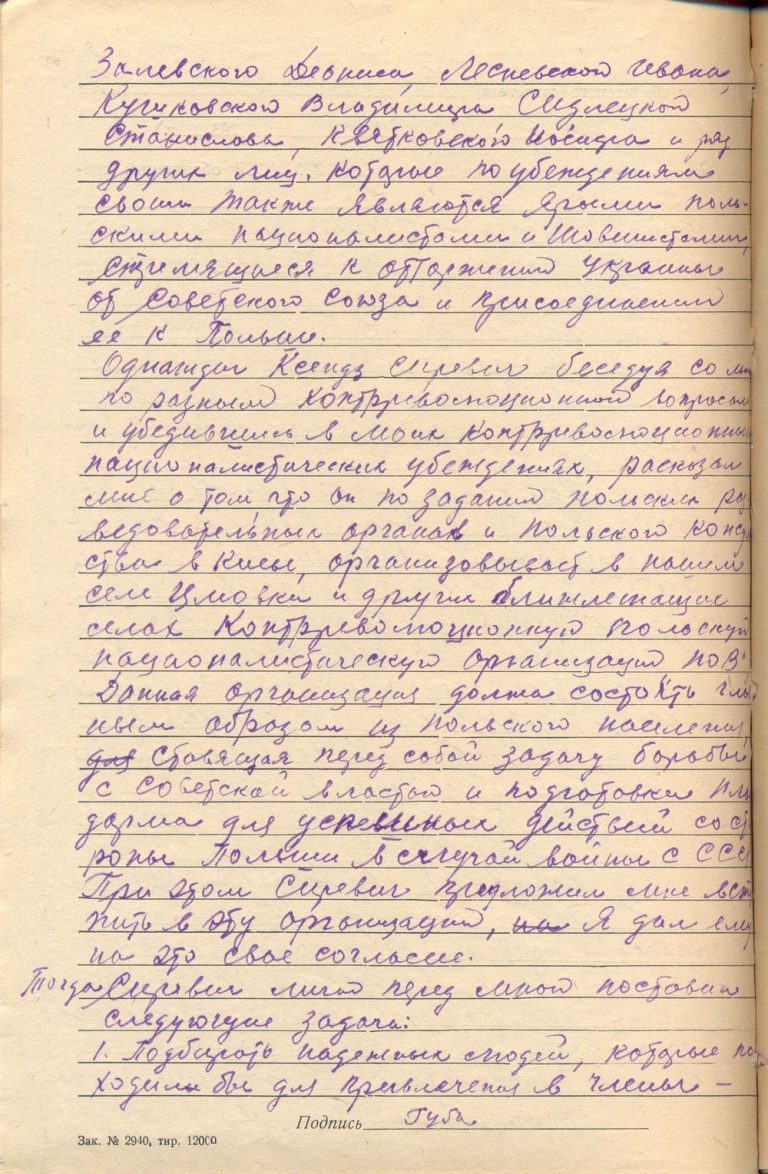 Залевского Дениса, Лесневской Ивана,
Кучиковского Владимира Сидлецкой
Станислова, Квятковского Иосифа и ряд
других лиц, которые по убеждениям
своим также являются ярыми поль-
скими националистами и шовинистами,
стремящиеся к отторжению Украины
от Советского Союза и присоединении
ее к Польши.
Однажды Ксендз Сиревич беседуя со мн
по разным контрреволюционной вопросам
и убедившись в моих контрреволюционных
националистических убеждениях, расказал
мне о том что он по заданию польских раз
ведовательных органов и Польского консу
ства в Киеве, организовывает в нашем
селе и других близлежащие
селах Контрреволюционную Польскую
националистическую организацию ПОВ"
Данная организация должна состоять глав
ным образом из польского населения,
для ставящая перед собой задачу борьбы
с советской властью и подготовки пла
дарма для успешных действий со ст
роны Польши в случай войны с СССР
При этом Сиревич предложил мне всту
пить в эту организацию, на Я дал ему
на это свое согласие.
Тогда Сиревич лично перед мной поставил
следующие задачи:
1. Подбирать надежных людей, которые по
ходили бы для привлечения в члены –
Подпись Губа
Зак. № 2940, тир. 12000